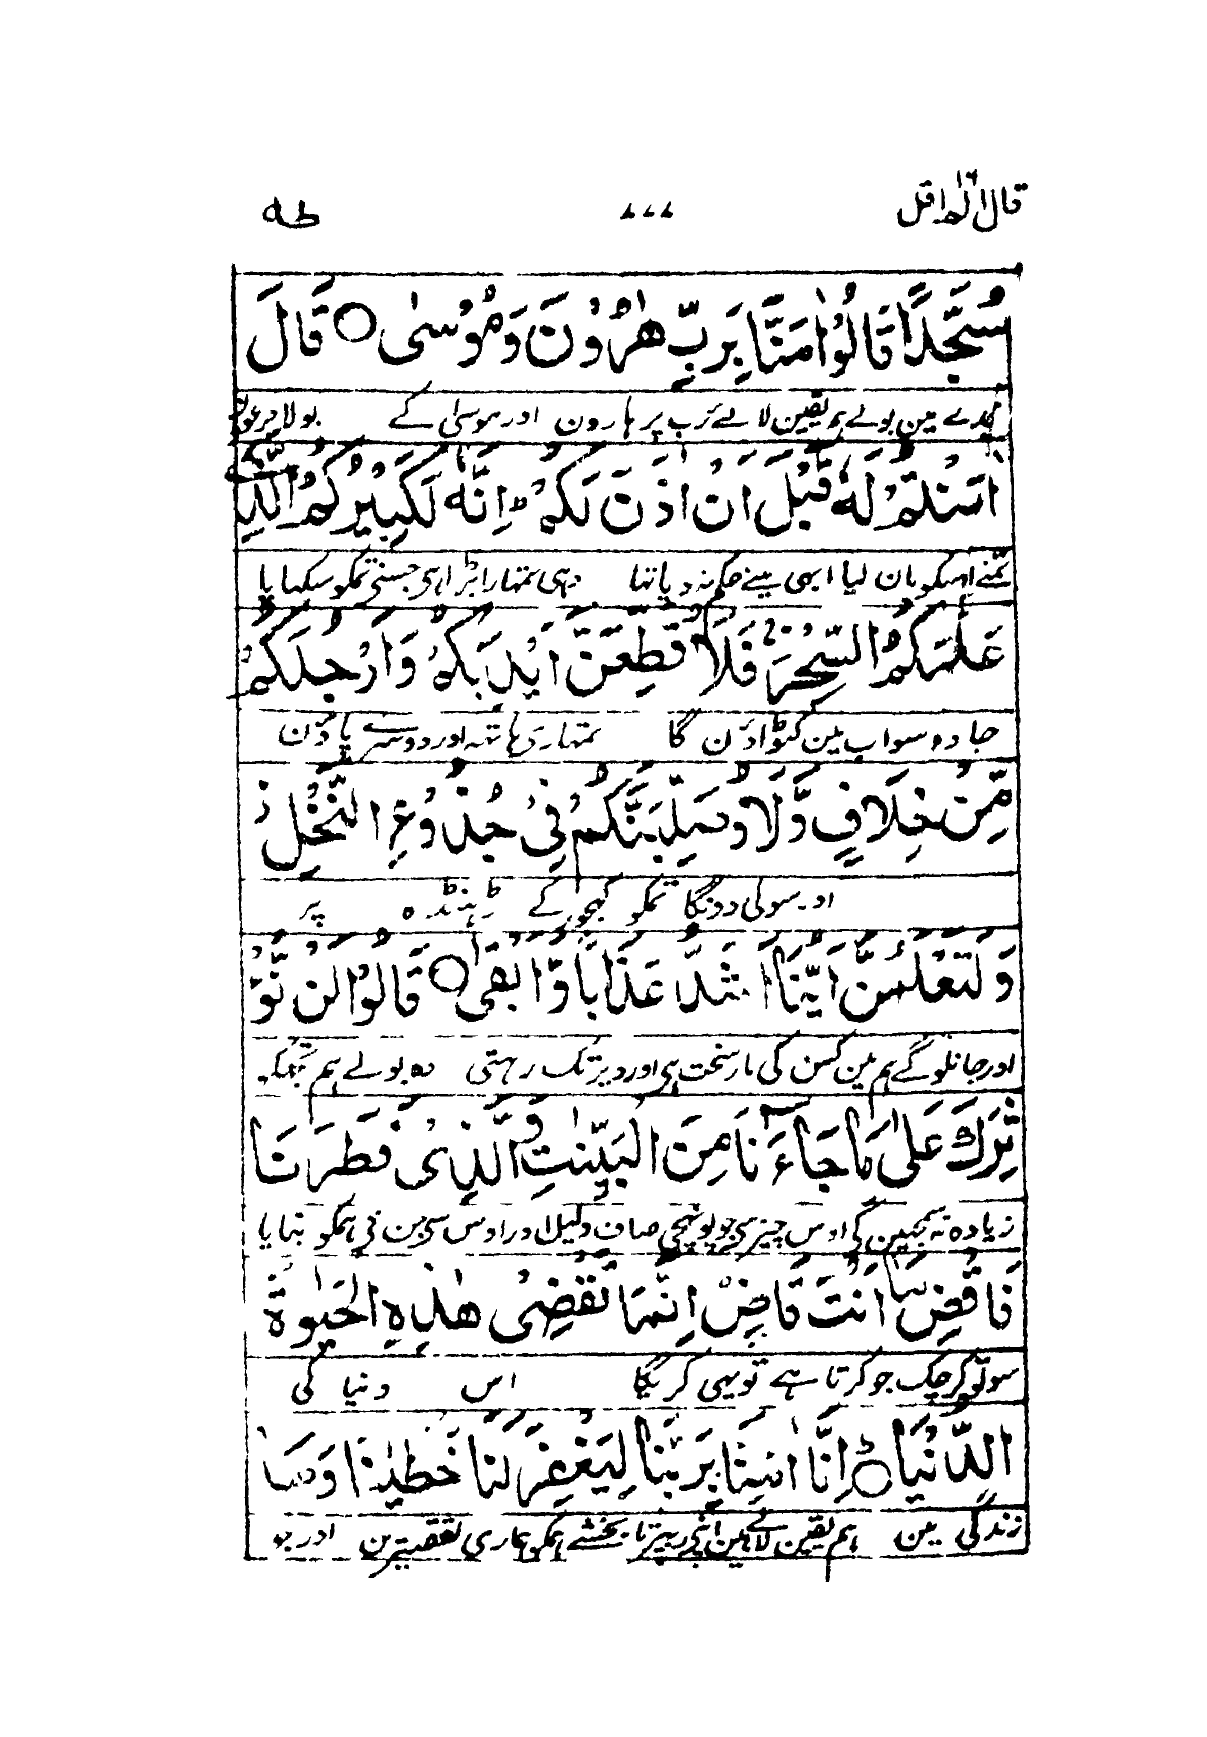 قال الم اقل ١٦ ٨٧٧ طه
سُجَّدًا قَالُوْا اٰمَنَّا بِرَبِّ هٰرُوْنَ وَمُوْسٰى ○ قَالَ
سجدے مین بولے ہم یقین لائے رب پر ہارون اور موسیٰ کے بولا فرعون
اٰمَنْتُمْ لَهٗ قَبْلَ اَنْ اٰذَنَ لَكُمْ ؕ اِنَّهٗ لَكَبِيْرُكُمُ الَّذِيْ
تمنے اوسکو مان لیا ابھی مینے حکم نہ دیا تہا وہی تمہارا بڑا ہی جسنے تمکو سکہایا
عَلَّمَكُمُ السِّحْرَ ۚ فَلَاُقَطِّعَنَّ اَيْدِيَكُمْ وَاَرْجُلَكُمْ
جادو سو اب مین کٹواؤن گا تمہاری ہاتہہ اور دوسرے پاؤن
مِّنْ خِلَافٍ وَّلَاُوصَلِّبَنَّكُمْ فِيْ جُذُوْعِ النَّخْلِ ز
اور سولی دونگا تمکو کھجور کے ڈہنڈہ پر
وَلَتَعْلَمُنَّ اَيُّنَا اَشَدُّ عَذَابًا وَّاَبْقٰى ○ قَالُوْا لَنْ نُّؤْ
اور جانلوگے ہم مین کسن کی مار سخت ہی اور دیر تک رہتی وہ بولے ہم تجھکو
ثِرَكَ عَلٰى مَا جَآءَنَا مِنَ الْبَيِّنٰتِ وَالَّذِىْ فَطَرَنَا
زیادہ نہ سمجہین گی اوس چیز سی جو پہنچی صاف دلیل اور اوس سی جن نی ہمکو بنایا
فَاقْضِ مَا اَنْتَ قَاضٍ اِنَّمَا تَقْضِىْ هٰذِهِ الْحَيٰوةَ
سو تو کر چک جو کرتا ہے تو یہی کریگا اس دنیا کی
الدُّنْيَا ؕ اِنَّا اٰمَنَّا بِرَبِّنَا لِيَغْفِرَ لَنَا خَطٰيٰنَا وَمَا
زندگی مین ہم یقین لائے ہین اپنے رب پر تا بخشے ہمکو ہماری تقصیرین اور جو